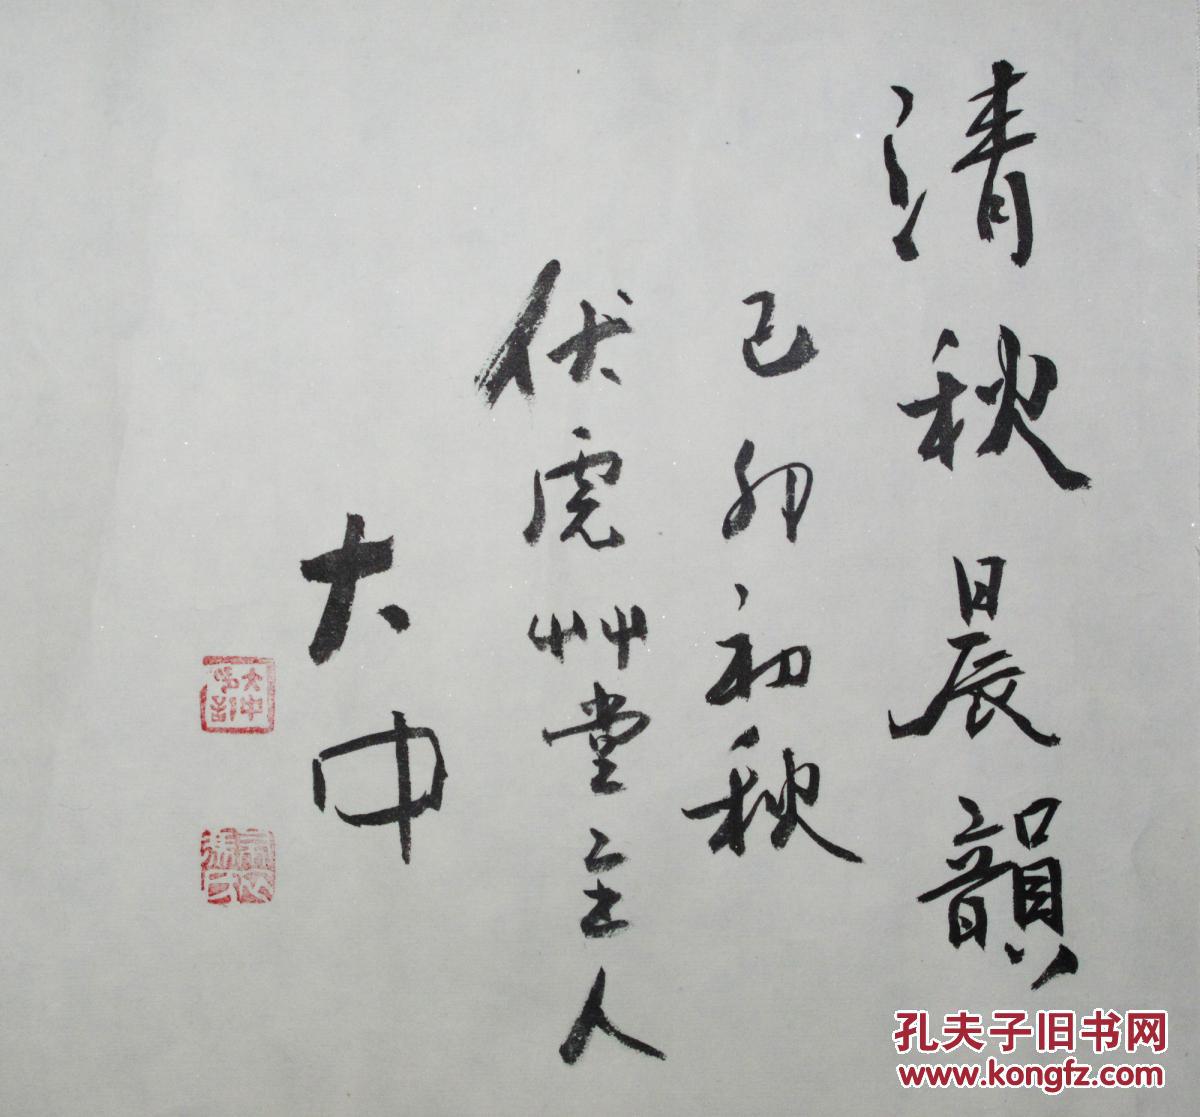 清秋晨韻
己卯初秋
伏虎艸堂主人
大中
孔夫子旧书网
www.kongfz.com